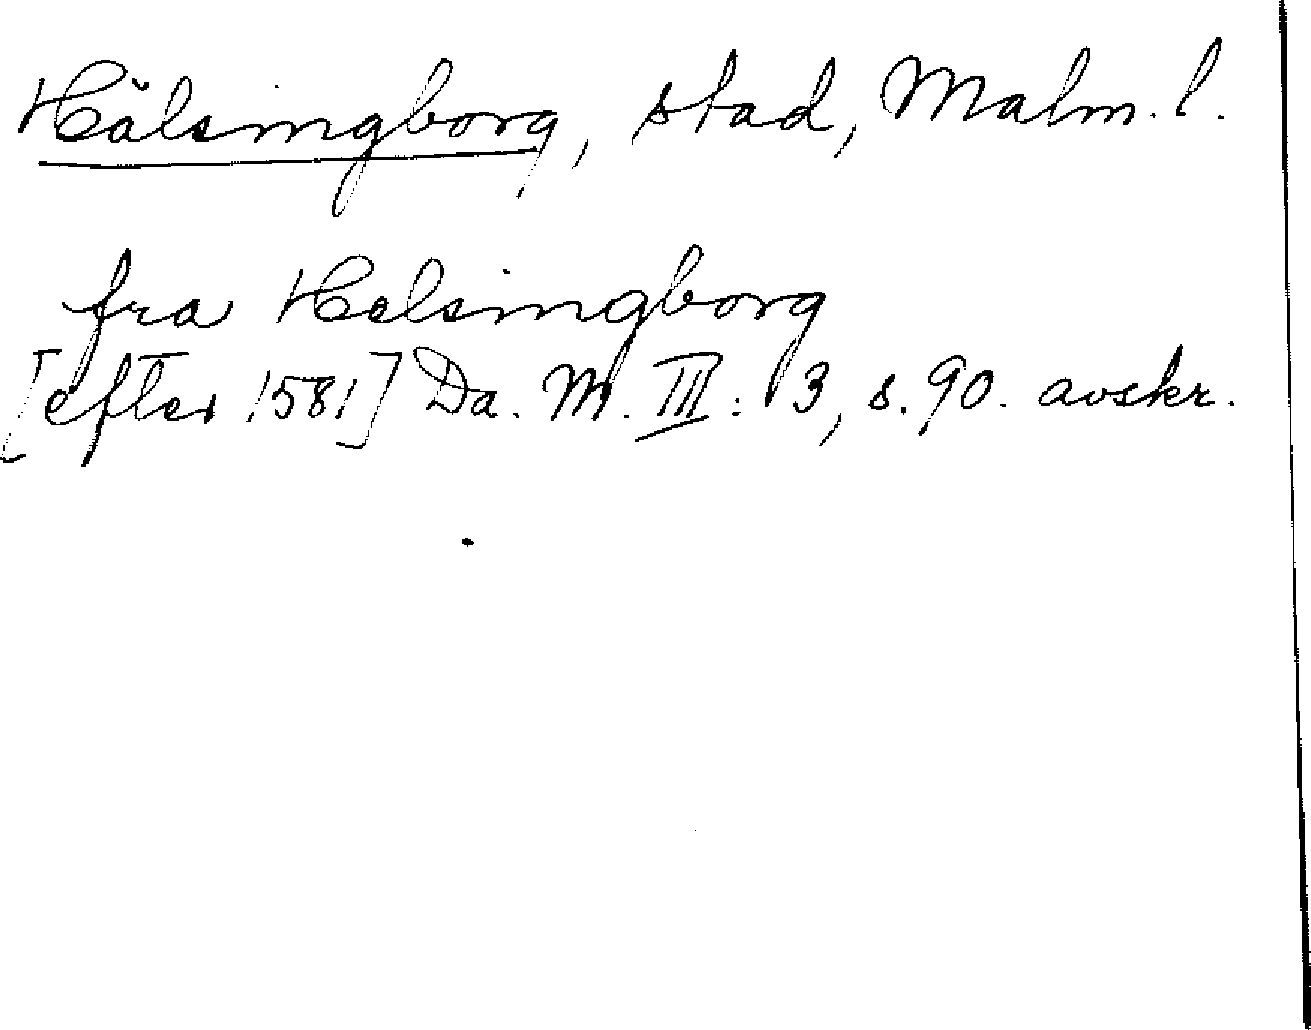 Hälsingborg, stad, Malm. l.
fra Helsingborg
[efter 1581] Da. M. III: 3, s. 90. avskr.